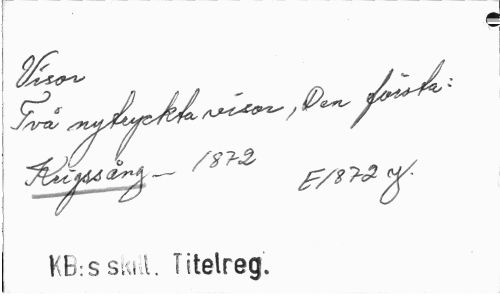 Visor
Två nytryckta visor, Den första:
Krigssång – 1872
E1872 y.
KB:s skill. Titelreg.